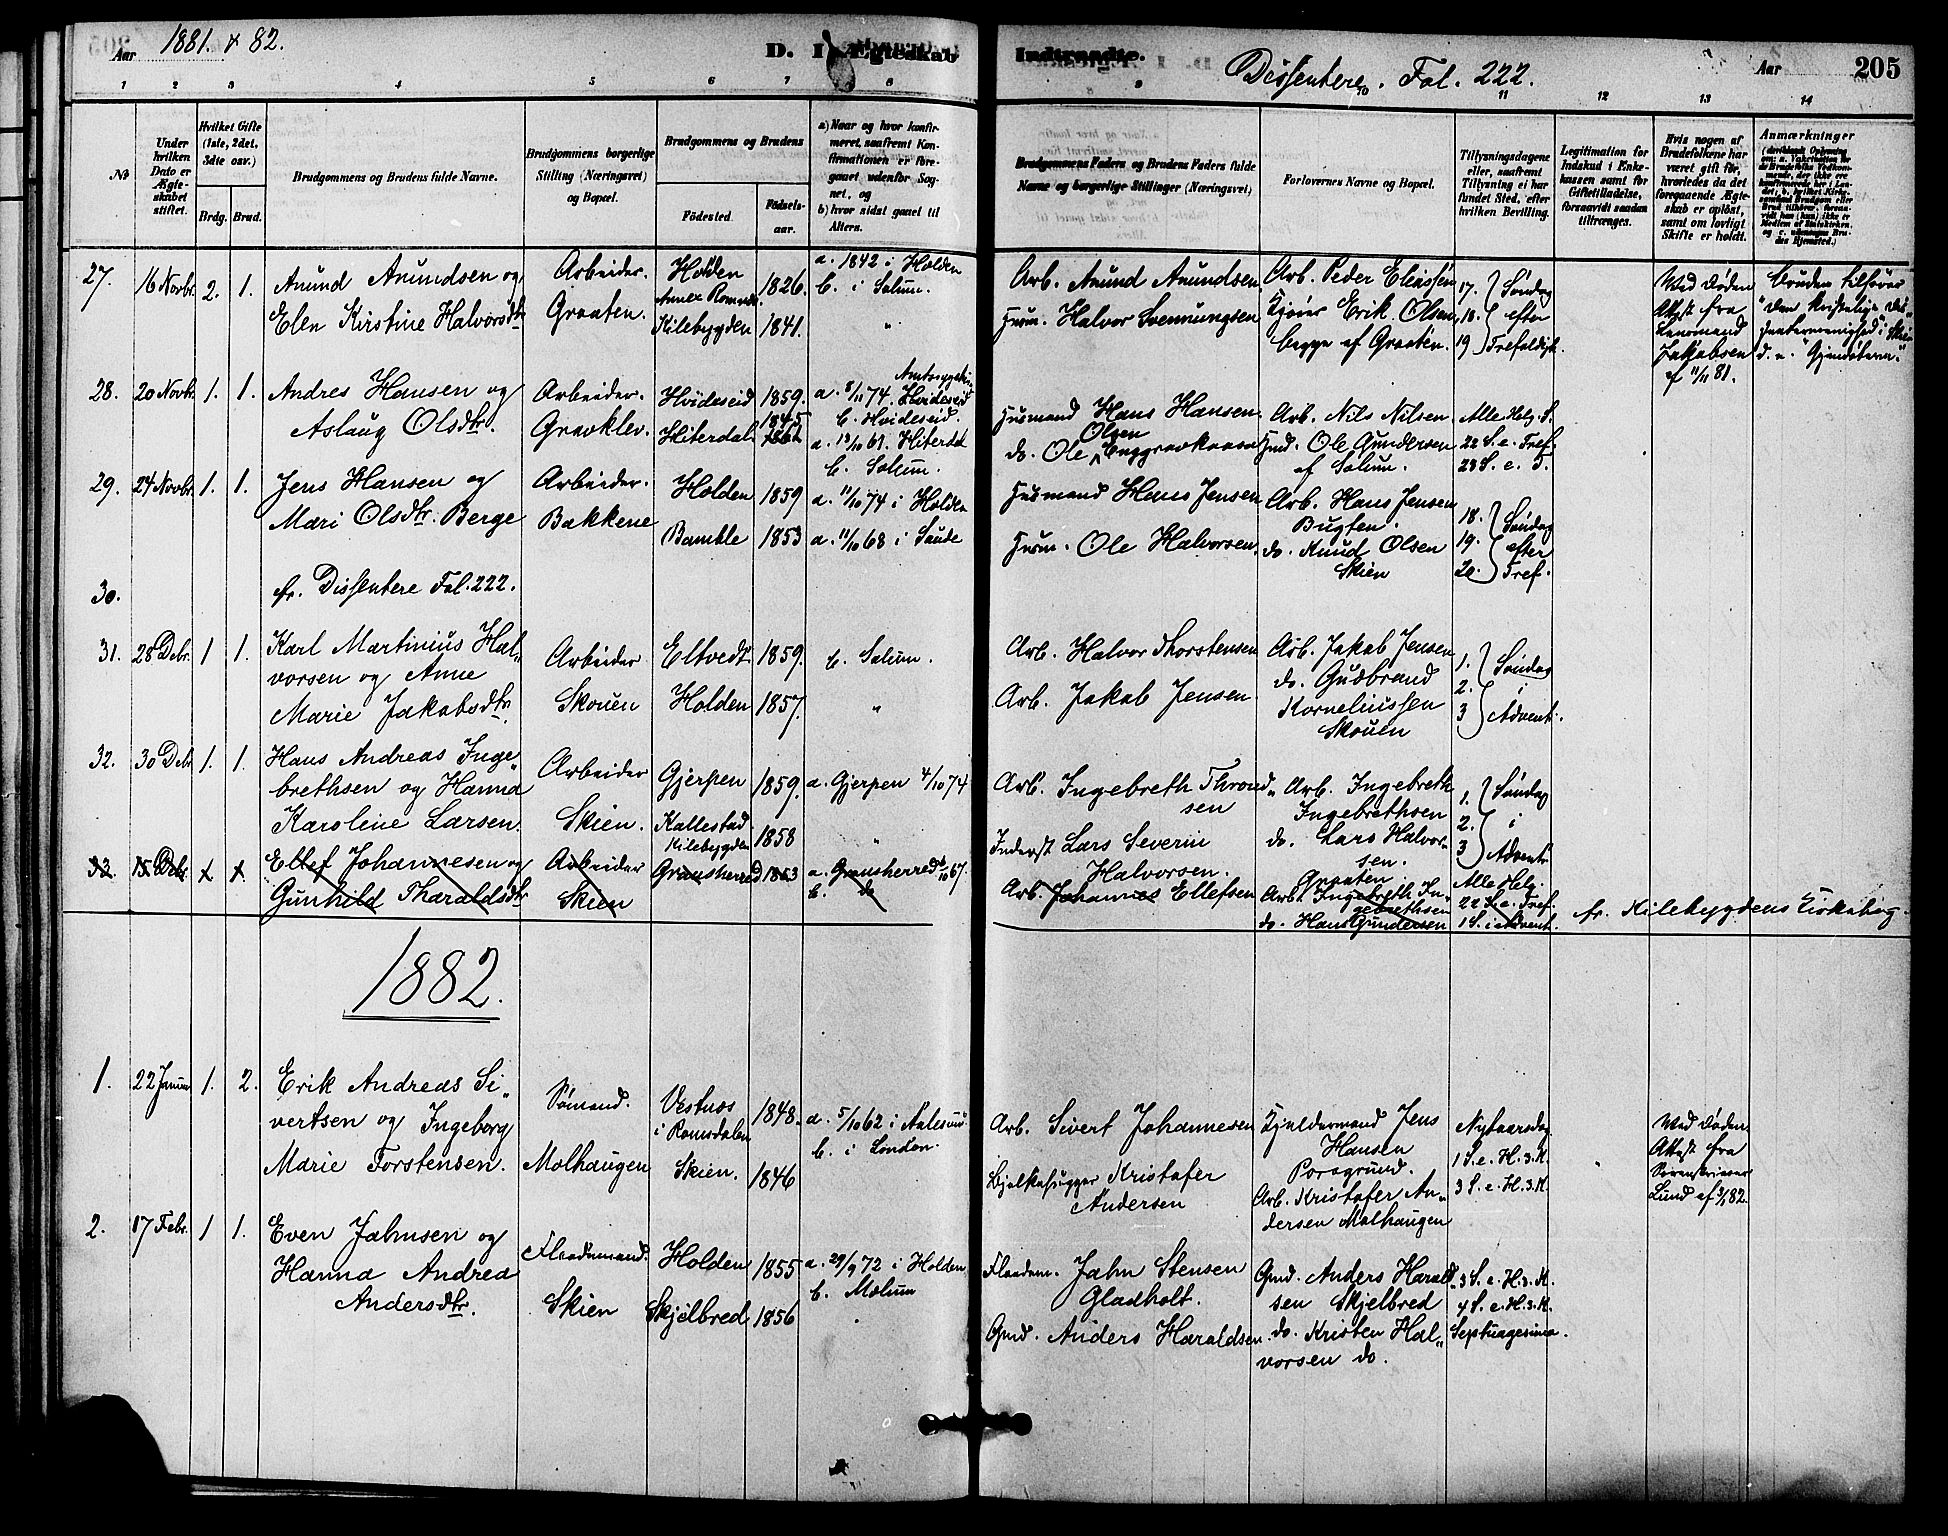 Aar 1881. & 82.
D. I Ægteskab Indtraadte.
Dissentere. Fol. 222.
Aar 205
1 2 3 4 5 6 7 8 9 10 11 12 13 14
No
Under hvilken Dato er Ægteskabet stiftet.
Hvilket Gifte (1ste, 2det, 3die osv.)
Brdg. Brud.
Brudgommens og Brudens fulde Navne.
Brudgommens borgerlige Stilling (Næringsvei) og Bopæl.
Brudgommens og Brudens
Födested.
Födselsaar.
a) Naar og hvor konfirmeret, saafremt Konfirmationen er foregaaet udenfor Sognet, og
b) hvor sidst gaaet til Alters.
Brudgommens Faders og Brudens Faders fulde Navne og borgerlige Stillinger (Næringsvei)
Forlovernes Navne og Bopæl.
Tillysningsdagene eller, saafremt Tillysning ei har fundet Sted, efter hvilken Bevilling.
Legitimation for Indskud i Enkekassen samt for Giftetilladelse, forsaavidt saadan tiltrænges.
Hvis nogen af Brudefolkene har været gift för, hvorledes da det foregaaende Ægteskab er oplöst, samt om lovligt Skifte er holdt.
Anmærkninger
27. 16 Novbr. 2. 1. Anund Anundsen og Arbeider. Holden 1826. a. 1842 i Holden Arb. Anund Anundsen Arb. Peder Eliassen 17. Søndag Ved Døden Bruden tilhører
Elen Kirstine Halvorsdtr. Graaten. Annex Romnes. b. i Solum. Husm. Halvor Svennungsen Kjører Erik Olsen 18. efter Attest fra "den kristelige Dis-
Kilebygden 1841. " begge af Graaten. 19 Trefoldigh. Lensmand sentermenighed i Skien
Jakobsen d. e. "Gjendøbern."
af 11/11 81.
28. 20 Novbr. 1. 1. Andres Hansen og Arbeider. Hvideseid 1859. a. 8/11 74. Hvideseid Husmand Hans Hansen Arb. Nils Nilsen Alle Helg. S.
Aslaug Olsdtr. Gravklev. Hiterdal 1845 b. Hvideseid. do. Ole Olsen Enggravkaasa Gmd. Ole Gundersen 22 S. e. Tref.
a. 13/10 61. Hiterdal af Solum. 23 S. e. T.
b. Solum.
29. 24 Novbr. 1. 1. Jens Hansen og Arbeider. Holden 1859 a. 11/10 74 i Holden Husmand Hans Jensen Arb. Hans Jensen 18. Søndag
Mari Olsdtr. Berge Bakkene Bamble 1853 a. 11/10 68 i Saude Husm. Ole Halvorsen. Bugten. 19. efter
do. Knud Olsen 20. Tref.
Skien
30. fr. Dissentere Fol. 222.
31. 28 Debr. 1 1. Karl Martinius Hal- Arbeider Eltvedt 1859. b. Solum. Arb. Halvor Thorstensen Arb. Jakob Jensen 1. Søndag
vorsen og Anne Skouen Holden 1857. " Arb. Jakob Jensen do. Gudbrand 2. i
Marie Jakobsdtr. Korneliussen 3 Advent.
Skouen
32. 30 Debr. 1. 1. Hans Andreas Inge- Arbeider Gjerpen 1859. a. Gjerpen 4/10 74 Arb. Ingebreth Thrond- Arb. Ingebreth 1. Søndag
brethsen og Hanna sen Ingebrethsen 2. i
Karoline Larsen. Skien. Kallestad 1858 " Inderst Lars Severin do. Lars Halvor- 3 Advent
Kilebygden Halvorsen. sen. Graaten.
33. 15 Debr. 1. 1. Ellef Johannesen og Arbeider Gransherred 1853 a. Gransherred 67. Arb. Johannes Ellefsen Arb. Ingebreth In- Alle Helg.
Gunhild Tharaldsdtr Skien b. do gebrethsen 22 S. e. Tref.
do. Hans Gundersen 1 S. i Advent. fr. Kilebygdens Kirkebog.
1882.
1. 22 Januar 1. 2. Erik Andreas Si- Sømand. Vestnes 1848. a. 5/10 62 i Aalesund Arb. Sivert Johannesen Kjeldermand Jens Nytaarsdag Ved Døden
vertsen og Ingeborg i Romsdalen b. i London. Hansen 1 S. e. H. 3. K. Attest fra
Marie Torstensen. Molhaugen Skien. 1846 Bjelkehugger Kristofer Porsgrund. 3 S. e. H. 3. K. Sorenskriver
Andersen Arb. Kristofer An- Lund af 3/1 82.
dersen Molhaugen
2. 17 Febr. 1 1. Even Jahnsen og Flaademand. Holden 1855 a. 29/9 72 i Holden Flaadem. Jahn Stensen Gmd. Anders Harald- 3 S. e. H. 3. K.
Hanna Andrea b. Mælum Gladholt. sen Skjelbred 4 S. e. H. 3. K.
Andersdtr. Skien Skjelbred 1856 Gmd. Anders Haraldsen do. Kristen Hal- Septuagesima.
vorsen do.